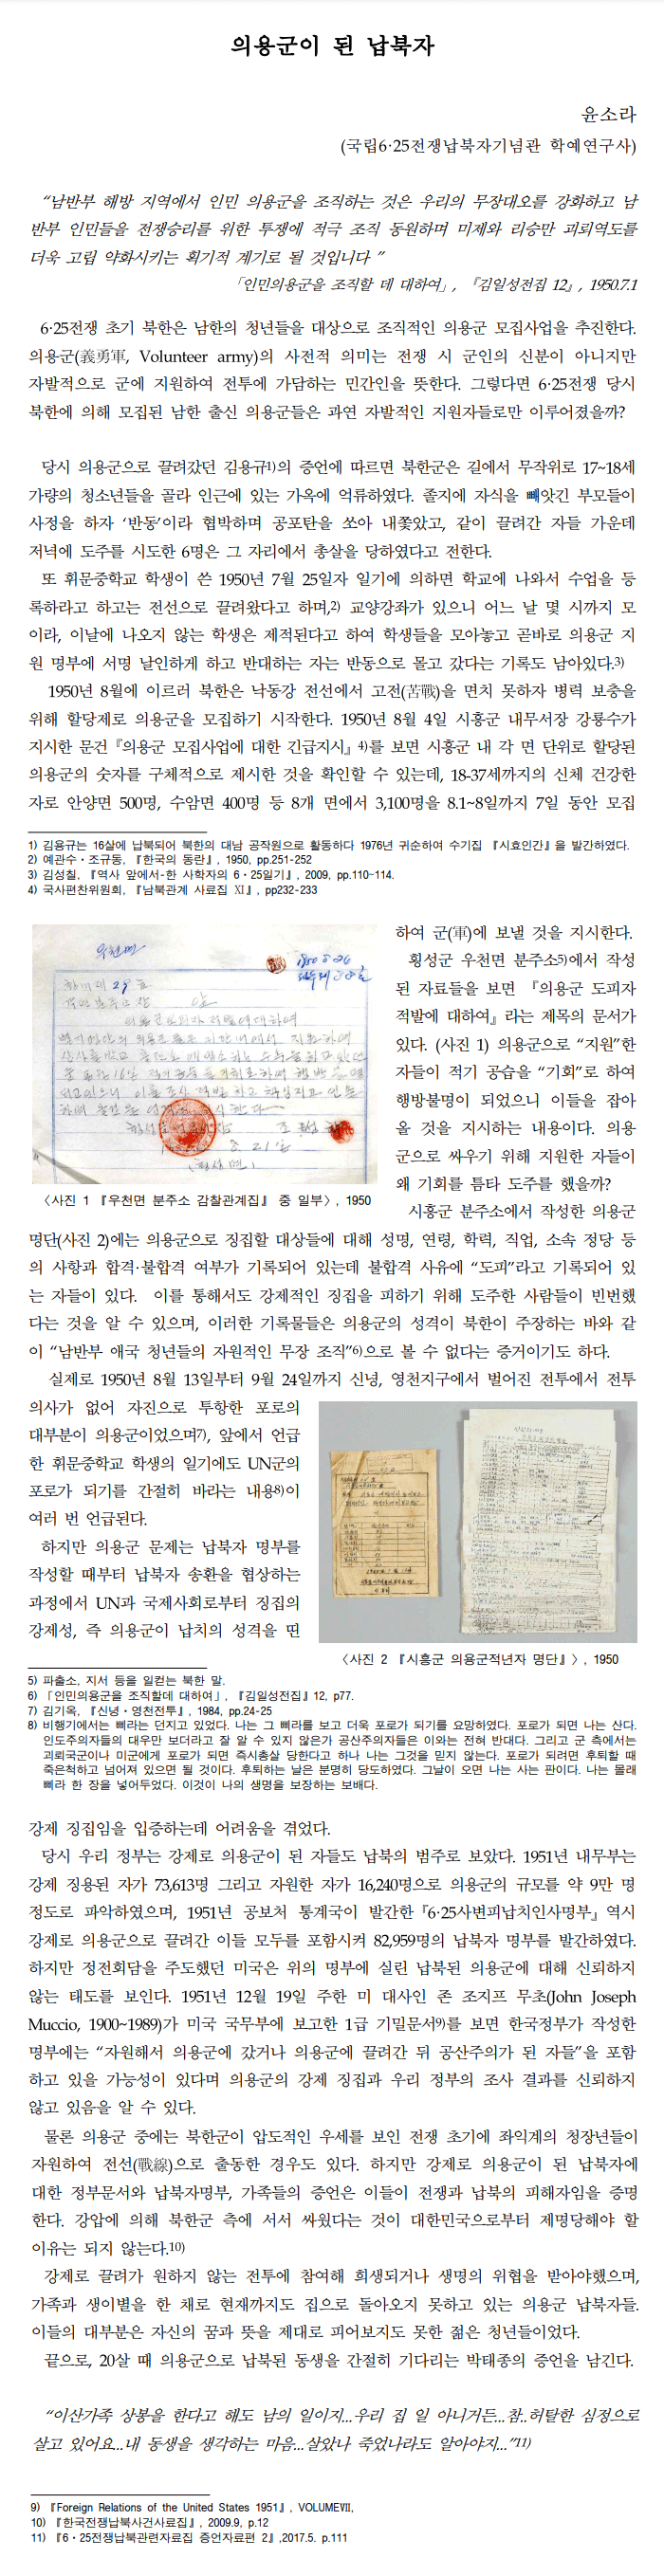 의용군이 된 납북자
윤소라
(국립6·25전쟁납북자기념관 학예연구사)
“남반부 해방 지역에서 인민 의용군을 조직하는 것은 우리의 무장대오를 강화하고 남
반부 인민들을 전쟁승리를 위한 투쟁에 적극 조직 동원하며 미제와 리승만 괴뢰역도를
더욱 고립 약화시키는 획기적 계기로 될 것입니다 ”
「인민의용군을 조직할 데 대하여」, 『김일성전집 12』, 1950.7.1
6·25전쟁 초기 북한은 남한의 청년들을 대상으로 조직적인 의용군 모집사업을 추진한다.
의용군(義勇軍, Volunteer army)의 사전적 의미는 전쟁 시 군인의 신분이 아니지만
자발적으로 군에 지원하여 전투에 가담하는 민간인을 뜻한다. 그렇다면 6·25전쟁 당시
북한에 의해 모집된 남한 출신 의용군들은 과연 자발적인 지원자들로만 이루어졌을까?
당시 의용군으로 끌려갔던 김용규1)의 증언에 따르면 북한군은 길에서 무작위로 17~18세
가량의 청소년들을 골라 인근에 있는 가옥에 억류하였다. 졸지에 자식을 빼앗긴 부모들이
사정을 하자 ‘반동’이라 협박하며 공포탄을 쏘아 내쫓았고, 같이 끌려간 자들 가운데
저녁에 도주를 시도한 6명은 그 자리에서 총살을 당하였다고 전한다.
또 휘문중학교 학생이 쓴 1950년 7월 25일자 일기에 의하면 학교에 나와서 수업을 등
록하라고 하고는 전선으로 끌려왔다고 하며,2) 교양강좌가 있으니 어느 날 몇 시까지 모
이라, 이날에 나오지 않는 학생은 제적된다고 하여 학생들을 모아놓고 곧바로 의용군 지
원 명부에 서명 날인하게 하고 반대하는 자는 반동으로 몰고 갔다는 기록도 남아있다.3)
1950년 8월에 이르러 북한은 낙동강 전선에서 고전(苦戰)을 면치 못하자 병력 보충을
위해 할당제로 의용군을 모집하기 시작한다. 1950년 8월 4일 시흥군 내무서장 강룡수가
지시한 문건『의용군 모집사업에 대한 긴급지시』4)를 보면 시흥군 내 각 면 단위로 할당된
의용군의 숫자를 구체적으로 제시한 것을 확인할 수 있는데, 18-37세까지의 신체 건강한
자로 안양면 500명, 수암면 400명 등 8개 면에서 3,100명을 8.1~8일까지 7일 동안 모집
1) 김용규는 16살에 납북되어 북한의 대남 공작원으로 활동하다 1976년 귀순하여 수기집 『시효인간』을 발간하였다.
2) 예관수·조규동, 『한국의 동란』, 1950, pp.251-252
3) 김성칠, 『역사 앞에서-한 사학자의 6·25일기』, 2009, pp.110-114.
4) 국사편찬위원회, 『남북관계 사료집 XI』, pp232-233
하여 군(軍)에 보낼 것을 지시한다.
횡성군 우천면 분주소5)에서 작성
된 자료들을 보면 『의용군 도피자
적발에 대하여』라는 제목의 문서가
있다. (사진 1) 의용군으로 “지원”한
자들이 적기 공습을 “기회”로 하여
행방불명이 되었으니 이들을 잡아
올 것을 지시하는 내용이다. 의용
군으로 싸우기 위해 지원한 자들이
왜 기회를 틈타 도주를 했을까?
우천면
〈사진 1 『우천면 분주소 감찰관계집』 중 일부〉, 1950
시흥군 분주소에서 작성한 의용군
명단(사진 2)에는 의용군으로 징집할 대상들에 대해 성명, 연령, 학력, 직업, 소속 정당 등
의 사항과 합격·불합격 여부가 기록되어 있는데 불합격 사유에 “도피”라고 기록되어 있
는 자들이 있다. 이를 통해서도 강제적인 징집을 피하기 위해 도주한 사람들이 빈번했
다는 것을 알 수 있으며, 이러한 기록물들은 의용군의 성격이 북한이 주장하는 바와 같
이 “남반부 애국 청년들의 자원적인 무장 조직”6)으로 볼 수 없다는 증거이기도 하다.
실제로 1950년 8월 13일부터 9월 24일까지 신녕, 영천지구에서 벌어진 전투에서 전투
의사가 없어 자진으로 투항한 포로의
대부분이 의용군이었으며7), 앞에서 언급
한 휘문중학교 학생의 일기에도 UN군의
포로가 되기를 간절히 바라는 내용8)이
여러 번 언급된다.
하지만 의용군 문제는 납북자 명부를
작성할 때부터 납북자 송환을 협상하는
과정에서 UN과 국제사회로부터 징집의
강제성, 즉 의용군이 납치의 성격을 띤
〈사진 2 『시흥군 의용군적년자 명단』〉, 1950
5) 파출소, 지서 등을 일컫는 북한 말.
6) 「인민의용군을 조직할데 대하여」, 『김일성전집』12, p77.
7) 김기옥, 『신녕·영천전투』, 1984, pp.24-25
8) 비행기에서는 삐라는 던지고 있었다. 나는 그 삐라를 보고 더욱 포로가 되기를 요망하였다. 포로가 되면 나는 산다.
인도주의자들의 대우만 보더라고 잘 알 수 있지 않은가 공산주의자들은 이와는 전혀 반대다. 그리고 군 측에서는
괴뢰국군이나 미군에게 포로가 되면 즉시총살 당한다고 하나 나는 그것을 믿지 않는다. 포로가 되려면 후퇴할 때
죽은척하고 넘어져 있으면 될 것이다. 후퇴하는 날은 분명히 당도하였다. 그날이 오면 나는 사는 판이다. 나는 몰래
삐라 한 장을 넣어두었다. 이것이 나의 생명을 보장하는 보배다.
강제 징집임을 입증하는데 어려움을 겪었다.
당시 우리 정부는 강제로 의용군이 된 자들도 납북의 범주로 보았다. 1951년 내무부는
강제 징용된 자가 73,613명 그리고 자원한 자가 16,240명으로 의용군의 규모를 약 9만 명
정도로 파악하였으며, 1951년 공보처 통계국이 발간한『6·25사변피납치인사명부』 역시
강제로 의용군으로 끌려간 이들 모두를 포함시켜 82,959명의 납북자 명부를 발간하였다.
하지만 정전회담을 주도했던 미국은 위의 명부에 실린 납북된 의용군에 대해 신뢰하지
않는 태도를 보인다. 1951년 12월 19일 주한 미 대사인 존 조지프 무초(John Joseph
Muccio, 1900~1989)가 미국 국무부에 보고한 1급 기밀문서9)를 보면 한국정부가 작성한
명부에는 “자원해서 의용군에 갔거나 의용군에 끌려간 뒤 공산주의가 된 자들”을 포함
하고 있을 가능성이 있다며 의용군의 강제 징집과 우리 정부의 조사 결과를 신뢰하지
않고 있음을 알 수 있다.
물론 의용군 중에는 북한군이 압도적인 우세를 보인 전쟁 초기에 좌익계의 청장년들이
자원하여 전선(戰線)으로 출동한 경우도 있다. 하지만 강제로 의용군이 된 납북자에
대한 정부문서와 납북자명부, 가족들의 증언은 이들이 전쟁과 납북의 피해자임을 증명
한다. 강압에 의해 북한군 측에 서서 싸웠다는 것이 대한민국으로부터 제명당해야 할
이유는 되지 않는다.10)
강제로 끌려가 원하지 않는 전투에 참여해 희생되거나 생명의 위협을 받아야했으며,
가족과 생이별을 한 채로 현재까지도 집으로 돌아오지 못하고 있는 의용군 납북자들.
이들의 대부분은 자신의 꿈과 뜻을 제대로 피어보지도 못한 젊은 청년들이었다.
끝으로, 20살 때 의용군으로 납북된 동생을 간절히 기다리는 박태종의 증언을 남긴다.
“이산가족 상봉을 한다고 해도 남의 일이지...우리 집 일 아니거든...참..허탈한 심정으로
살고 있어요...내 동생을 생각하는 마음...살았나 죽었나라도 알아야지...”11)
9) 『Foreign Relations of the United States 1951』, VOLUMEⅦ,
10) 『한국전쟁납북사건사료집』, 2009.9, p.12
11) 『6·25전쟁납북관련자료집 증언자료편 2』,2017.5. p.111